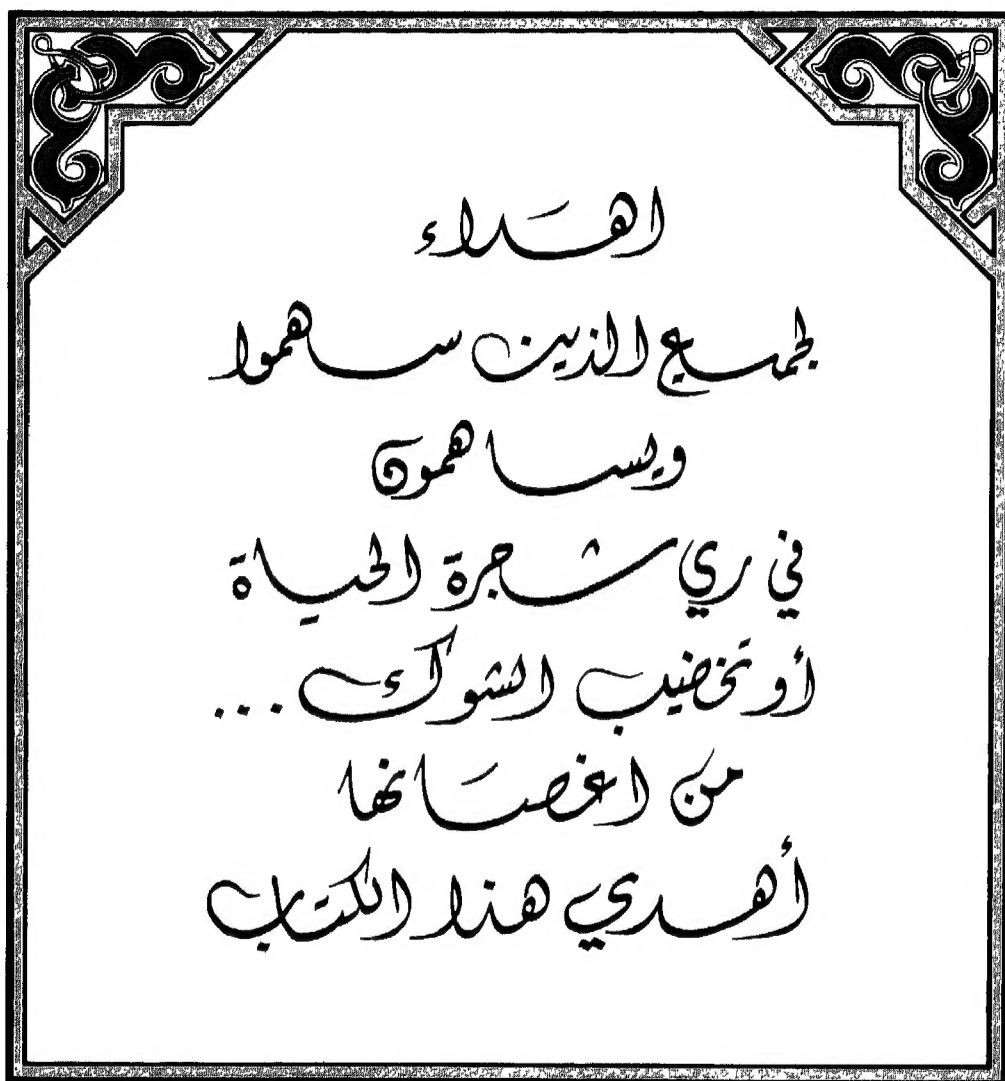 اهداء
لجميع الذين ساهموا
ويساهمون
في ري شجرة الحياة
أو تخضيب الشوك ...
من اغصانها
أهدي هذا الكتاب